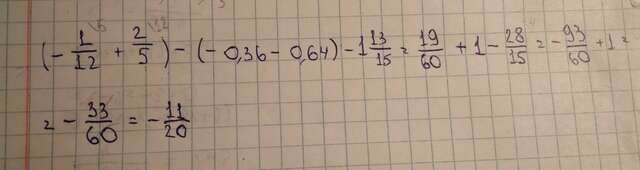 (-1/12 + 2/5) - (-0,36 - 0,64) - 1 13/15 = 19/60 + 1 - 28/15 = -93/60 + 1 =
= -33/60 = -11/20